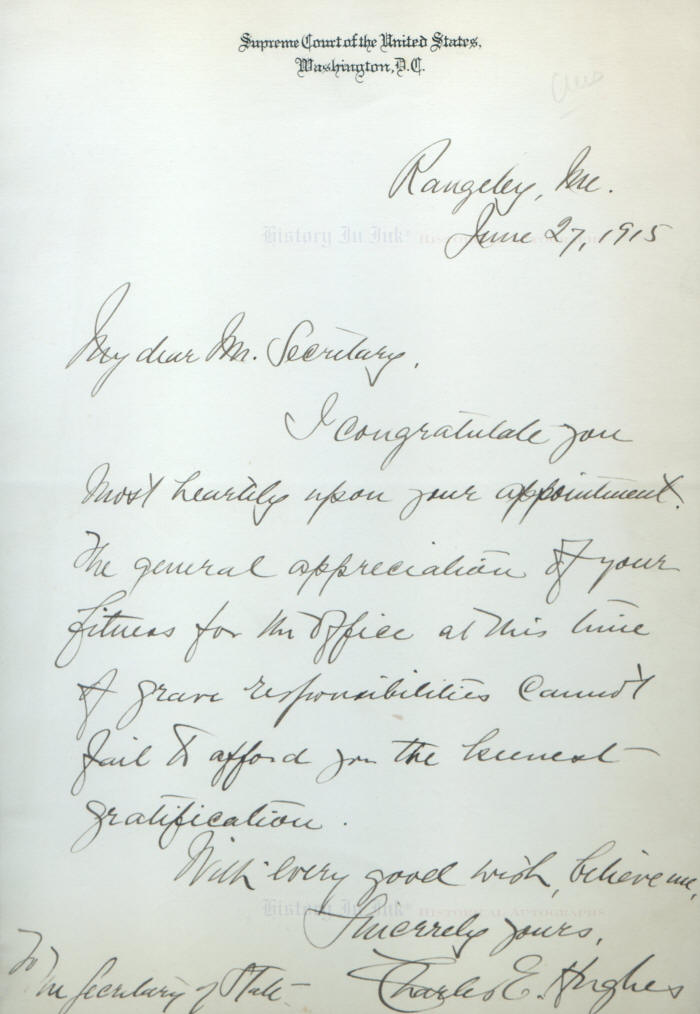 Supreme Court of the United States,
Washington, D.C.
Rangeley, Me.
History In Ink
June 27, 1915
My dear Mr. Secretary,
I congratulate you
most heartily upon your appointment.
The general appreciation of your
fitness for the office at this time
of grave responsibilities cannot
fail to afford you the keenest
gratification.
With every good wish, believe me,
History In Ink HISTORICAL AUTOGRAPHS
Sincerely yours,
Charles E. Hughes
To
The Secretary of State